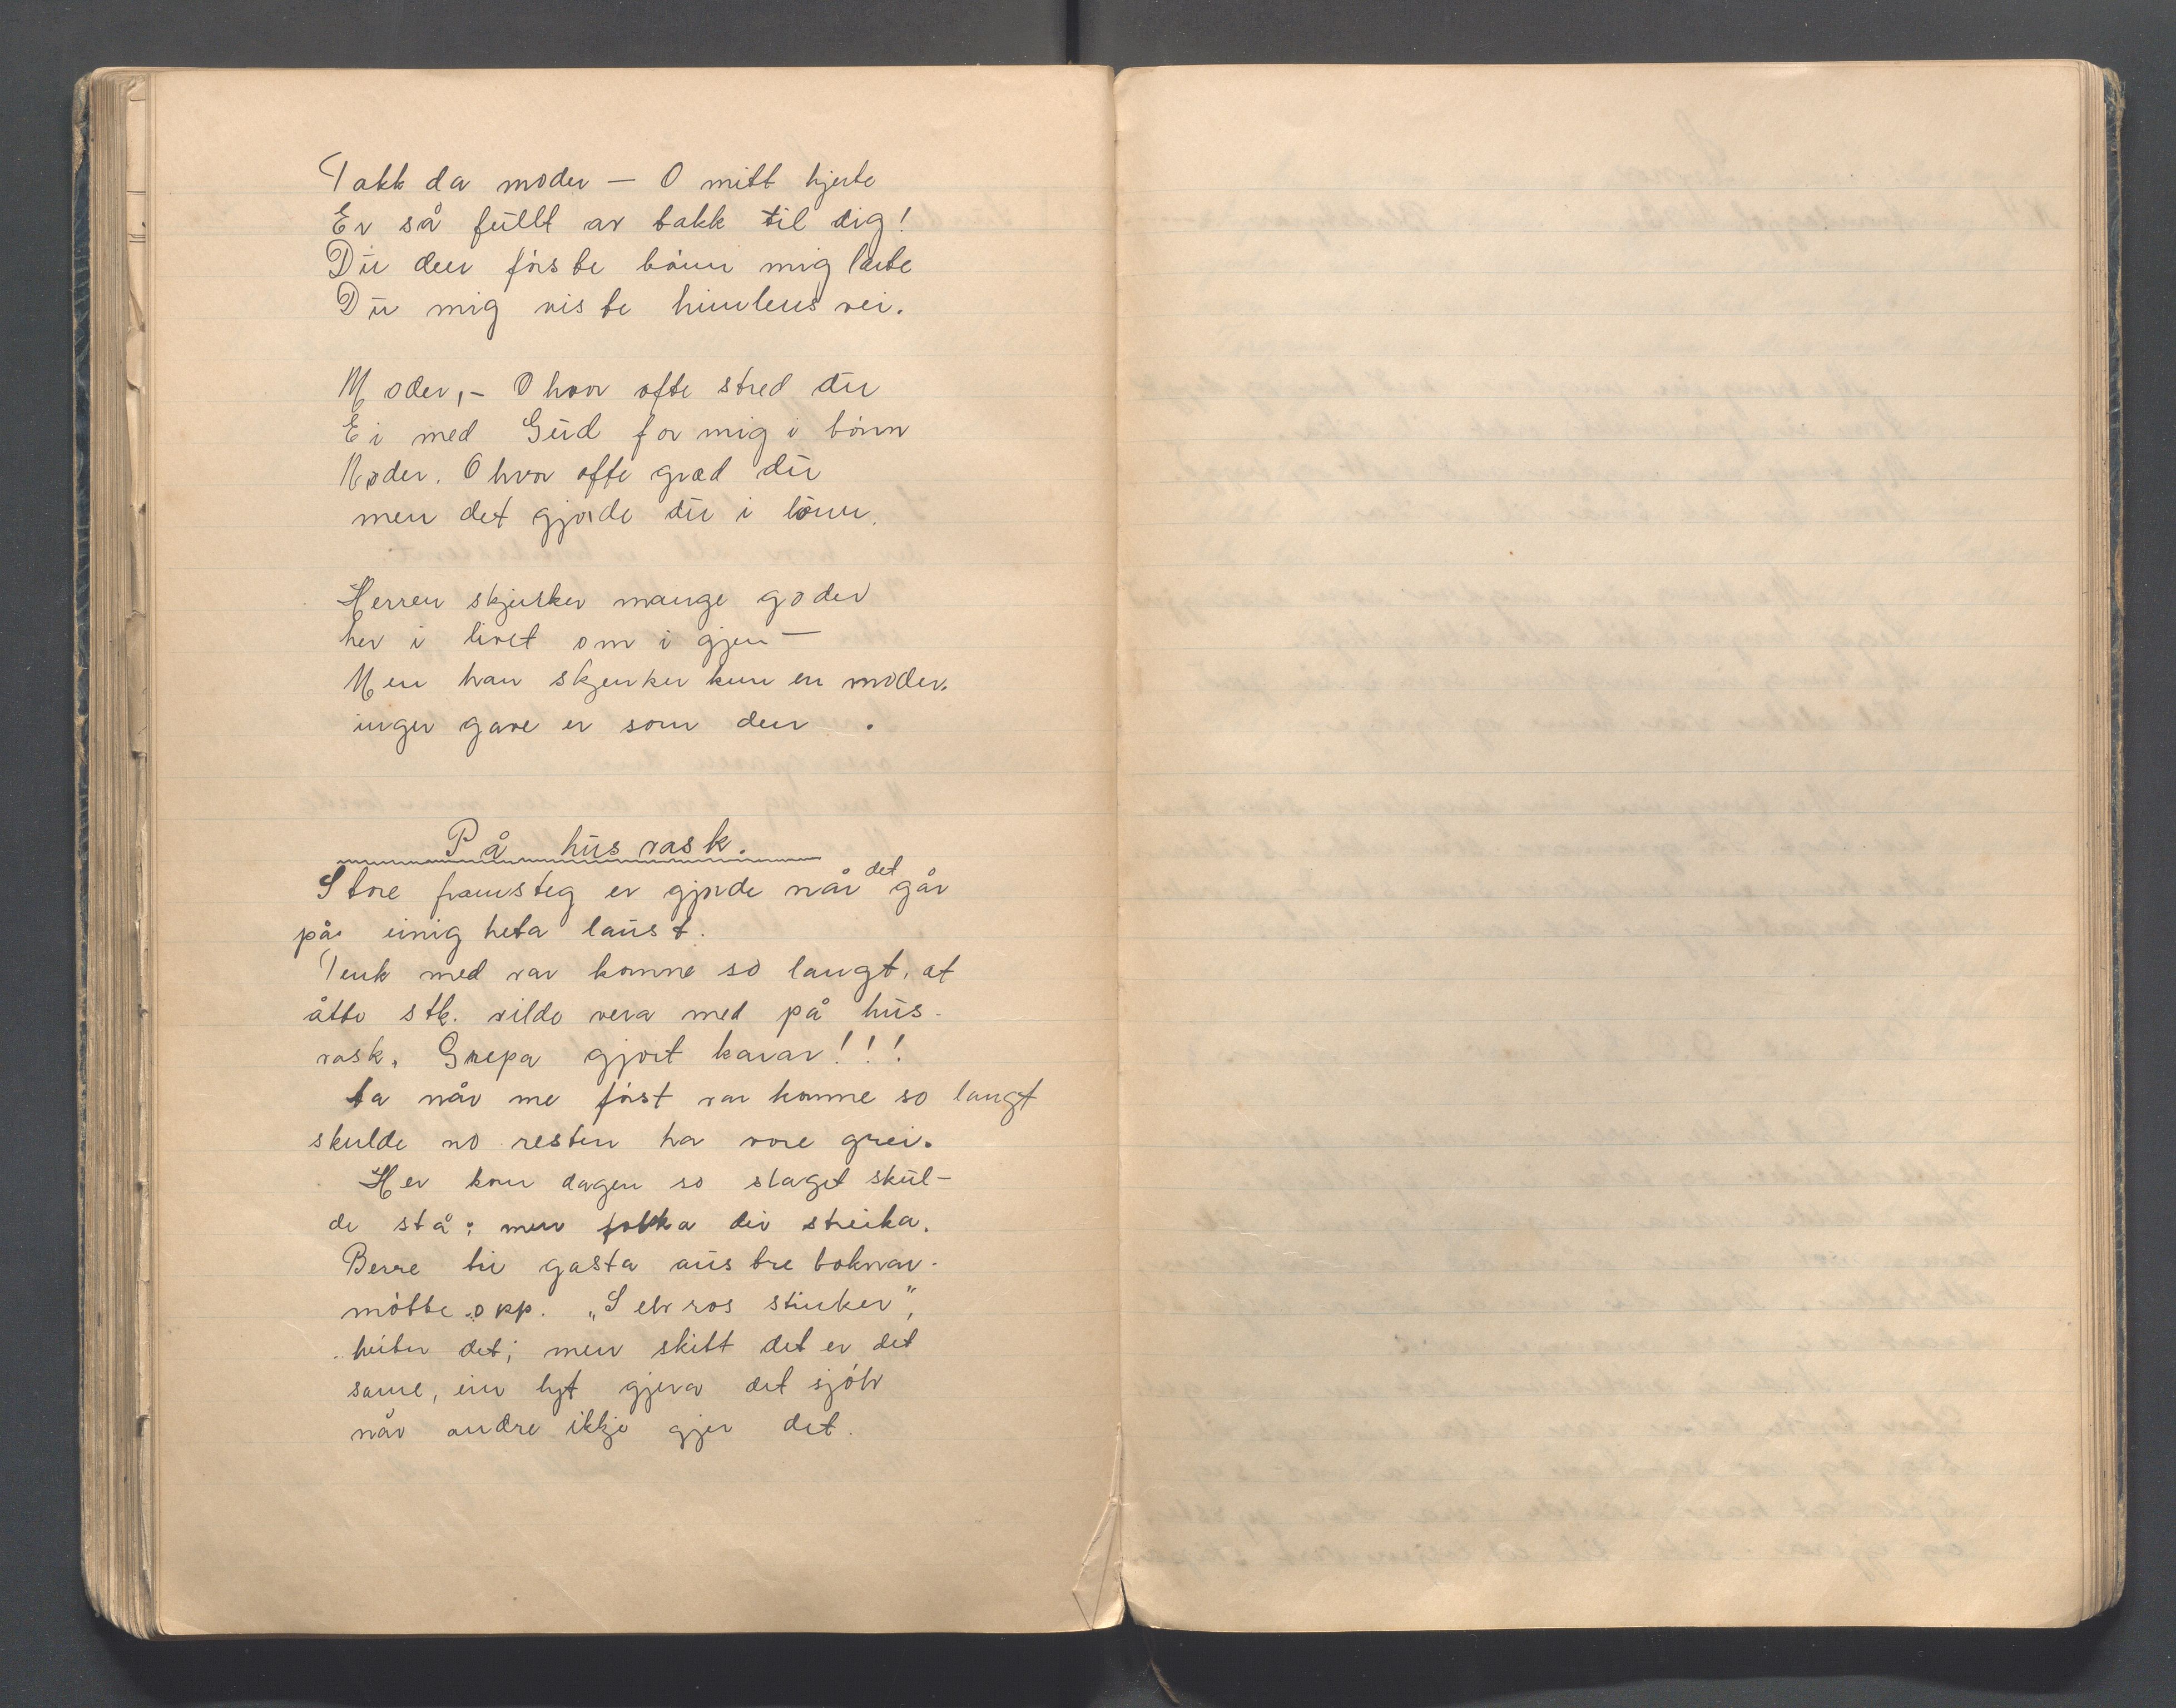 Takk da moder — O mitt hjerte
Er så fullt av takk til dig!
Du den første bønn mig lærte
Du mig viste himlens vei.
Moder, – O hvor ofte stred du
Ei med Gud for mig i bønn
Moder. O hvor ofte græd du
men det gjorde du i lønn.
Herren skjenker mange goder
her i livet om i gjen —
Men han skjenker kun en moder.
ingen gave er som den .
På husrask.
Store framsteg er gjorde når det går
på einigheta laust.
Tenk med var komne so langt, at
åtte stk. vilde vera med på hus-
rask. Grepa gjort karar!!!
Ja når me først var komne so langt
skulde no resten ha vore grei.
Her kom dagen so slaget skul-
de stå; men folka dei streika.
Berre tri gasta austre boknar-
møtte opp. „Selvros stinker",
heiter det; men skitt det er det
same, ein lyt gjera det sjølv
når andre ikkje gjer det.